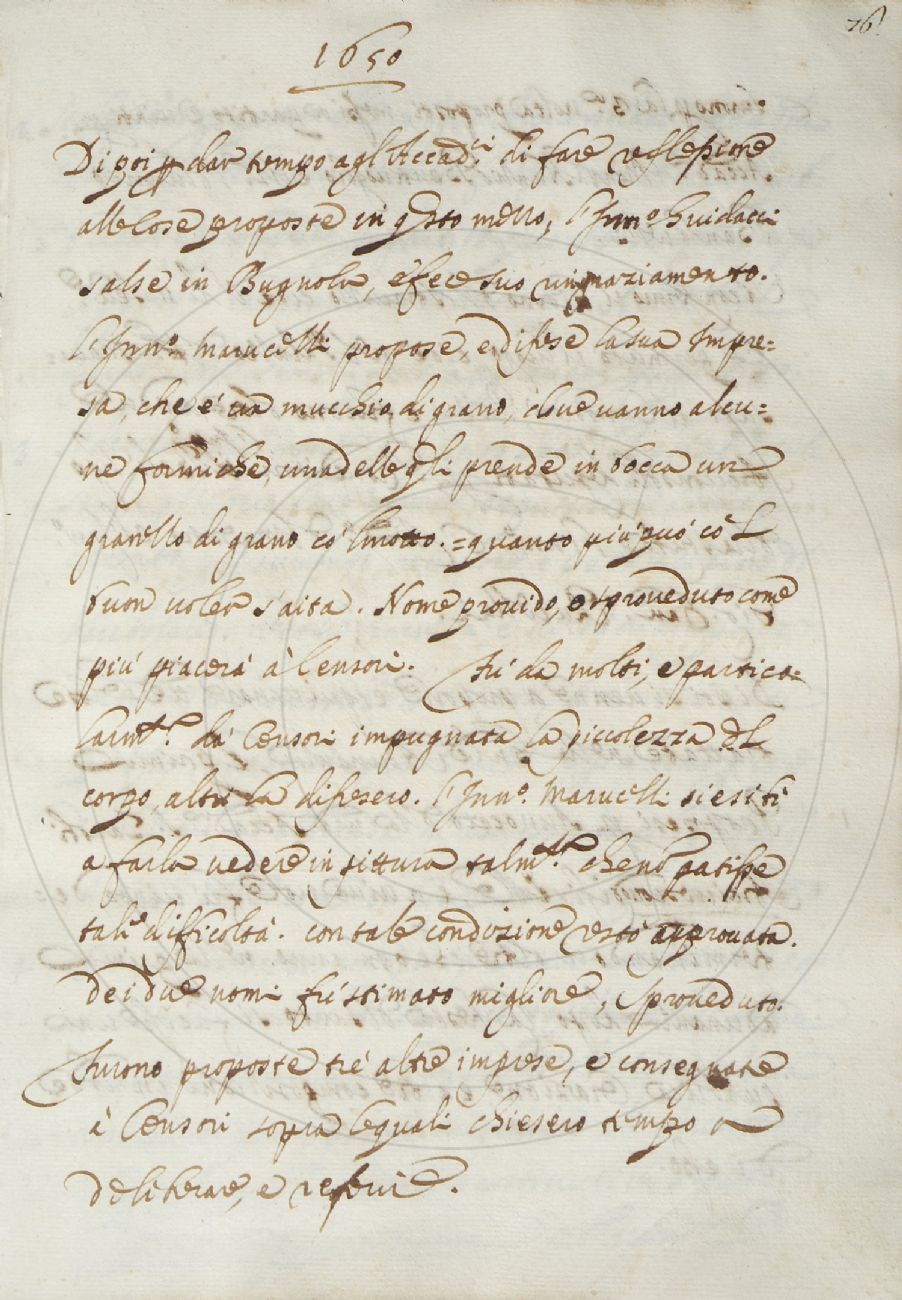 76
1650
Di poi p dar tempo agl'Accad.ci di fare reflessione
alle cose proposte in qsto mezzo, l'Inn.o Guidacci
salse in Bugnola, e fece suo ringraziamento.
l'Inn.o Marucelli propose, e difese la sua Impre=
sa, che é un mucchio di grano, dove uanno alcu=
ne formiche, una delle qli prende in bocca un
granello di grano co'l motto.=quanto piú puó co'l
buon uoler s'aita. Nome prouido, o sproueduto come
piú piacerá á Censori. Fú da molti, e partico=
larm.te da' Censori impugnata la piccolezza del
corpo, altri la difesero. l'Inn.o Marucelli si esibí
a farla uedere in pittura talm.te che nō patisse
tale difficoltá. con tale condizione restó approuata.
de i due nomi fú stimato migliore, Sproueduto.
Furono proposte tré altre imprese, e consegnate
á Censori sopra le quali chiesero tempo a
deliberare, e referire.